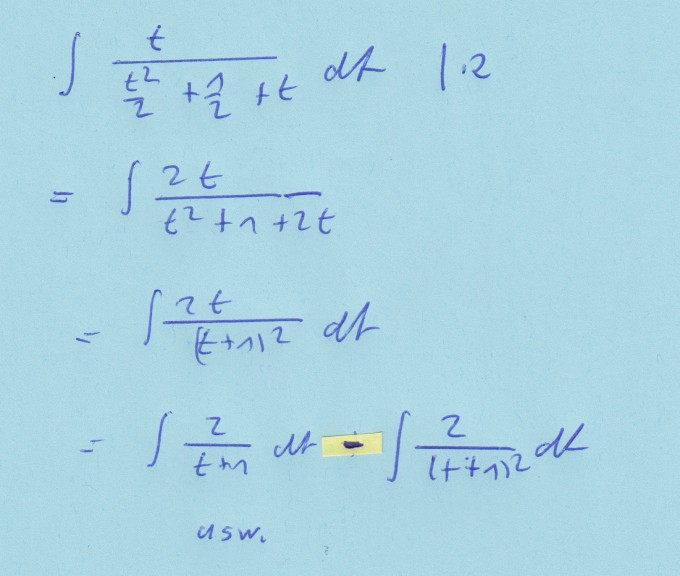 ∫ t / (t²/2 + 1/2 + t) dt | ·2
= ∫ 2t / (t² + 1 + 2t)
= ∫ 2t / (t+1)² dt
= ∫ 2 / (t+1) dt - ∫ 2 / (t+1)² dt
usw.